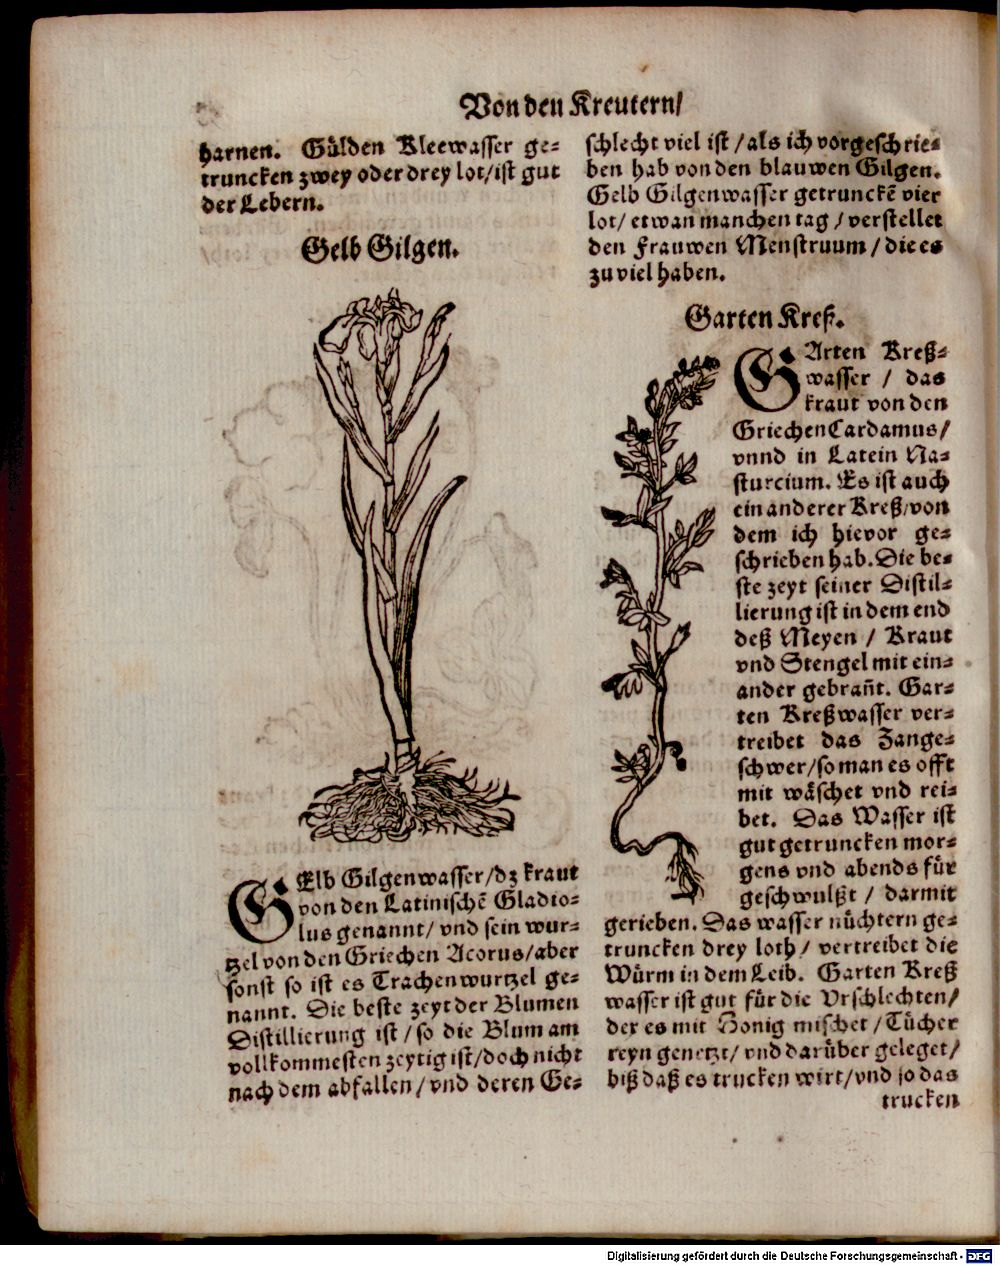 Von den Kreutern/
harnen. Gůlden Kleewasser ge⸗
truncken zwey oder drey lot/ist gut
der Lebern.
Gelb Gilgen.
GElb Gilgenwasser/dz kraut
von den Latinischē Gladio⸗
lus genannt/ vnd sein wur⸗
tzel von den Griechen Acorus/aber
sonst so ist es Trachenwurtzel ge⸗
nannt. Die beste zeyt der Blumen
Distillierung ist/so die Blum am
vollkommesten zeytig ist/doch nicht
nach dem abfallen/vnd deren Ge⸗
schlecht viel ist/als ich vorgeschrie⸗
ben hab von den blauwen Gilgen.
Gelb Gilgenwasser getrunckē vier
lot/ etwan manchen tag/verstellet
den Frauwen Menstruum/die es
zu viel haben.
Garten Kreß.
GArten Kreß⸗
wasser / das
kraut von den
Griechen Cardamus/
vnnd in Latein Na⸗
sturcium. Es ist auch
ein anderer Kreß/von
dem ich hievor ge⸗
schrieben hab. Die be⸗
ste zeyt seiner Distil⸗
lierung ist in dem end
deß Meyen / Kraut
vnd Stengel mit ein⸗
ander gebrañt. Gar⸗
ten Kreßwasser ver⸗
treibet das Zange⸗
schwer/so man es offt
mit wåschet vnd rei⸗
bet. Das Wasser ist
gut getruncken mor⸗
gens vnd abends fůr
geschwulßt / darmit
gerieben. Das wasser nůchtern ge⸗
truncken drey loth/ vertreibet die
Würm in dem Leib. Garten Kreß
wasser ist gut fůr die Vrschlechten/
der es mit Honig mischet/Tůcher
reyn genetzt/ vnd darůber geleget/
biß daß es trucken wirt/vnd so das
trucken
Digitalisierung gefördert durch die Deutsche Forschungsgemeinschaft - DFG